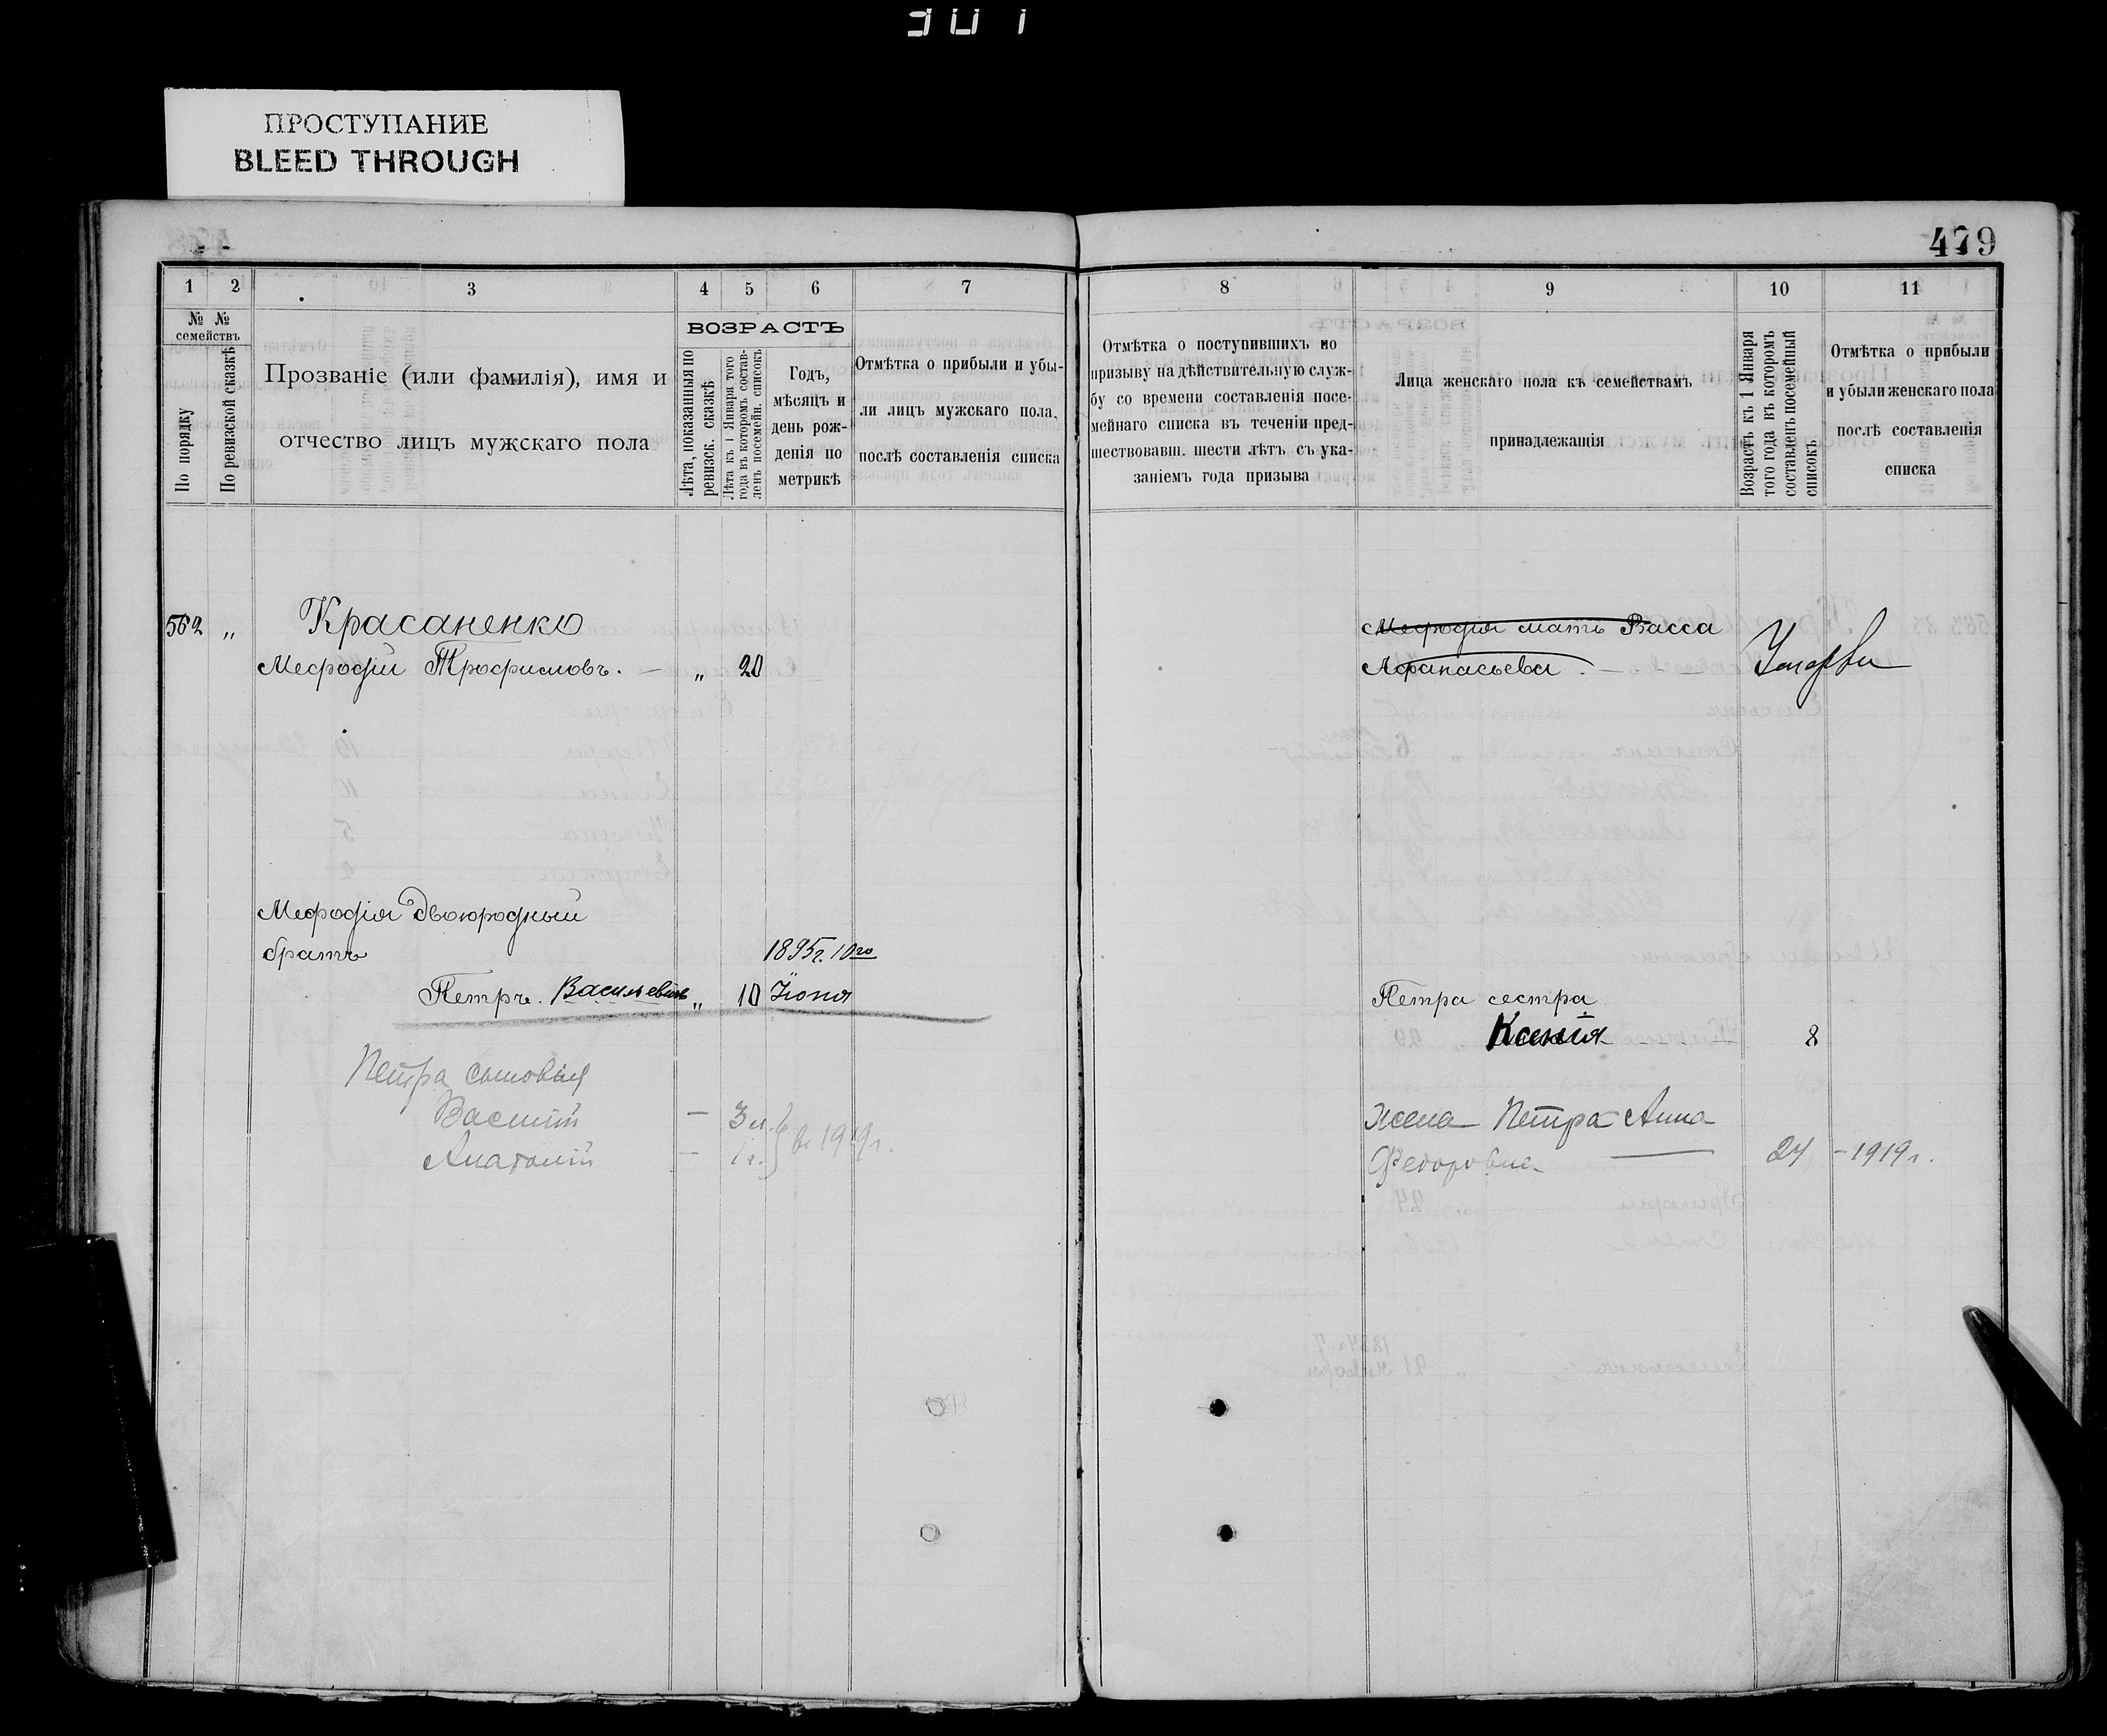 ПРОСТУПАНИЕ
BLEED THROUGH
479
1 2 3 4 5 6 7
№ №
семействъ
По порядку
По ревизской сказкѣ
Прозваніе (или фамилія), имя и
отчество лицъ мужскаго пола
ВОЗРАСТЪ
Лѣта, показанныя по
ревизск. сказкѣ
Лѣта къ 1 Января того
года въ которомъ состав-
ленъ посемейн. списокъ
Годъ,
мѣсяцъ и
день рож-
денія по
метрикѣ
Отмѣтка о прибыли и убы-
ли лицъ мужскаго пола,
послѣ составленія списка
562 „ Красаненко
Мефодій Трофимовъ. — „ 20
Мефодія двоюродный
братъ 1895г. 10го
Петръ. Васильевичъ „ 10 Іюня
Петра сыновья
Василій — 3 л.
Анатолій — 1 г. } в 1919г.
8 9 10 11
Отмѣтка о поступившихъ по
призыву на дѣйствительную служ-
бу со времени составленія посе-
мейнаго списка въ теченіи пред-
шествовавш. шести лѣтъ съ ука-
заніемъ года призыва
Лица женскаго пола къ семействамъ
принадлежащія
Возрастъ къ 1 Января
того года въ которомъ
составленъ посемейный
списокъ
Отмѣтка о прибыли
и убыли женскаго пола
послѣ составленія
списка
Мефодія мать Васса
Афанасьева. — —
Петра сестра
Ксенія 8
Жена Петра Анна
Федоровна — 24 – 1919г.